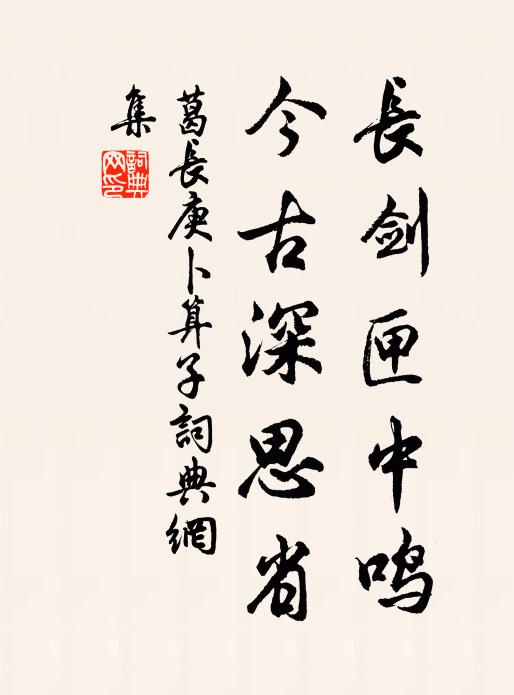 長劍匣中鳴
今古深思省
葛長庚卜算子詞典網
集
詞典
网印